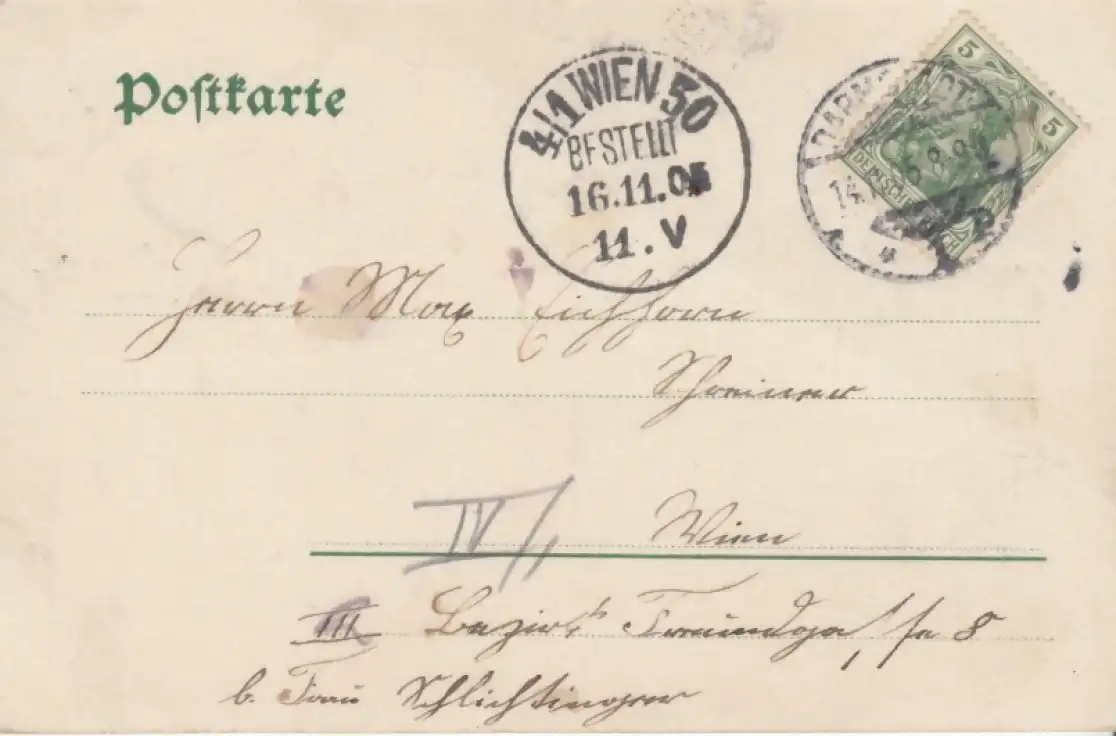 Postkarte
4/1 WIEN 50
BESTELLT
16.11.05
11. V
5
5
DEUTSCHES REICH
14.
8-9
Herrn Max Eichhorn
Schreiner
IV/1
Wien
III Bezirk Freundgasse 8
b. Frau Schlichtinger